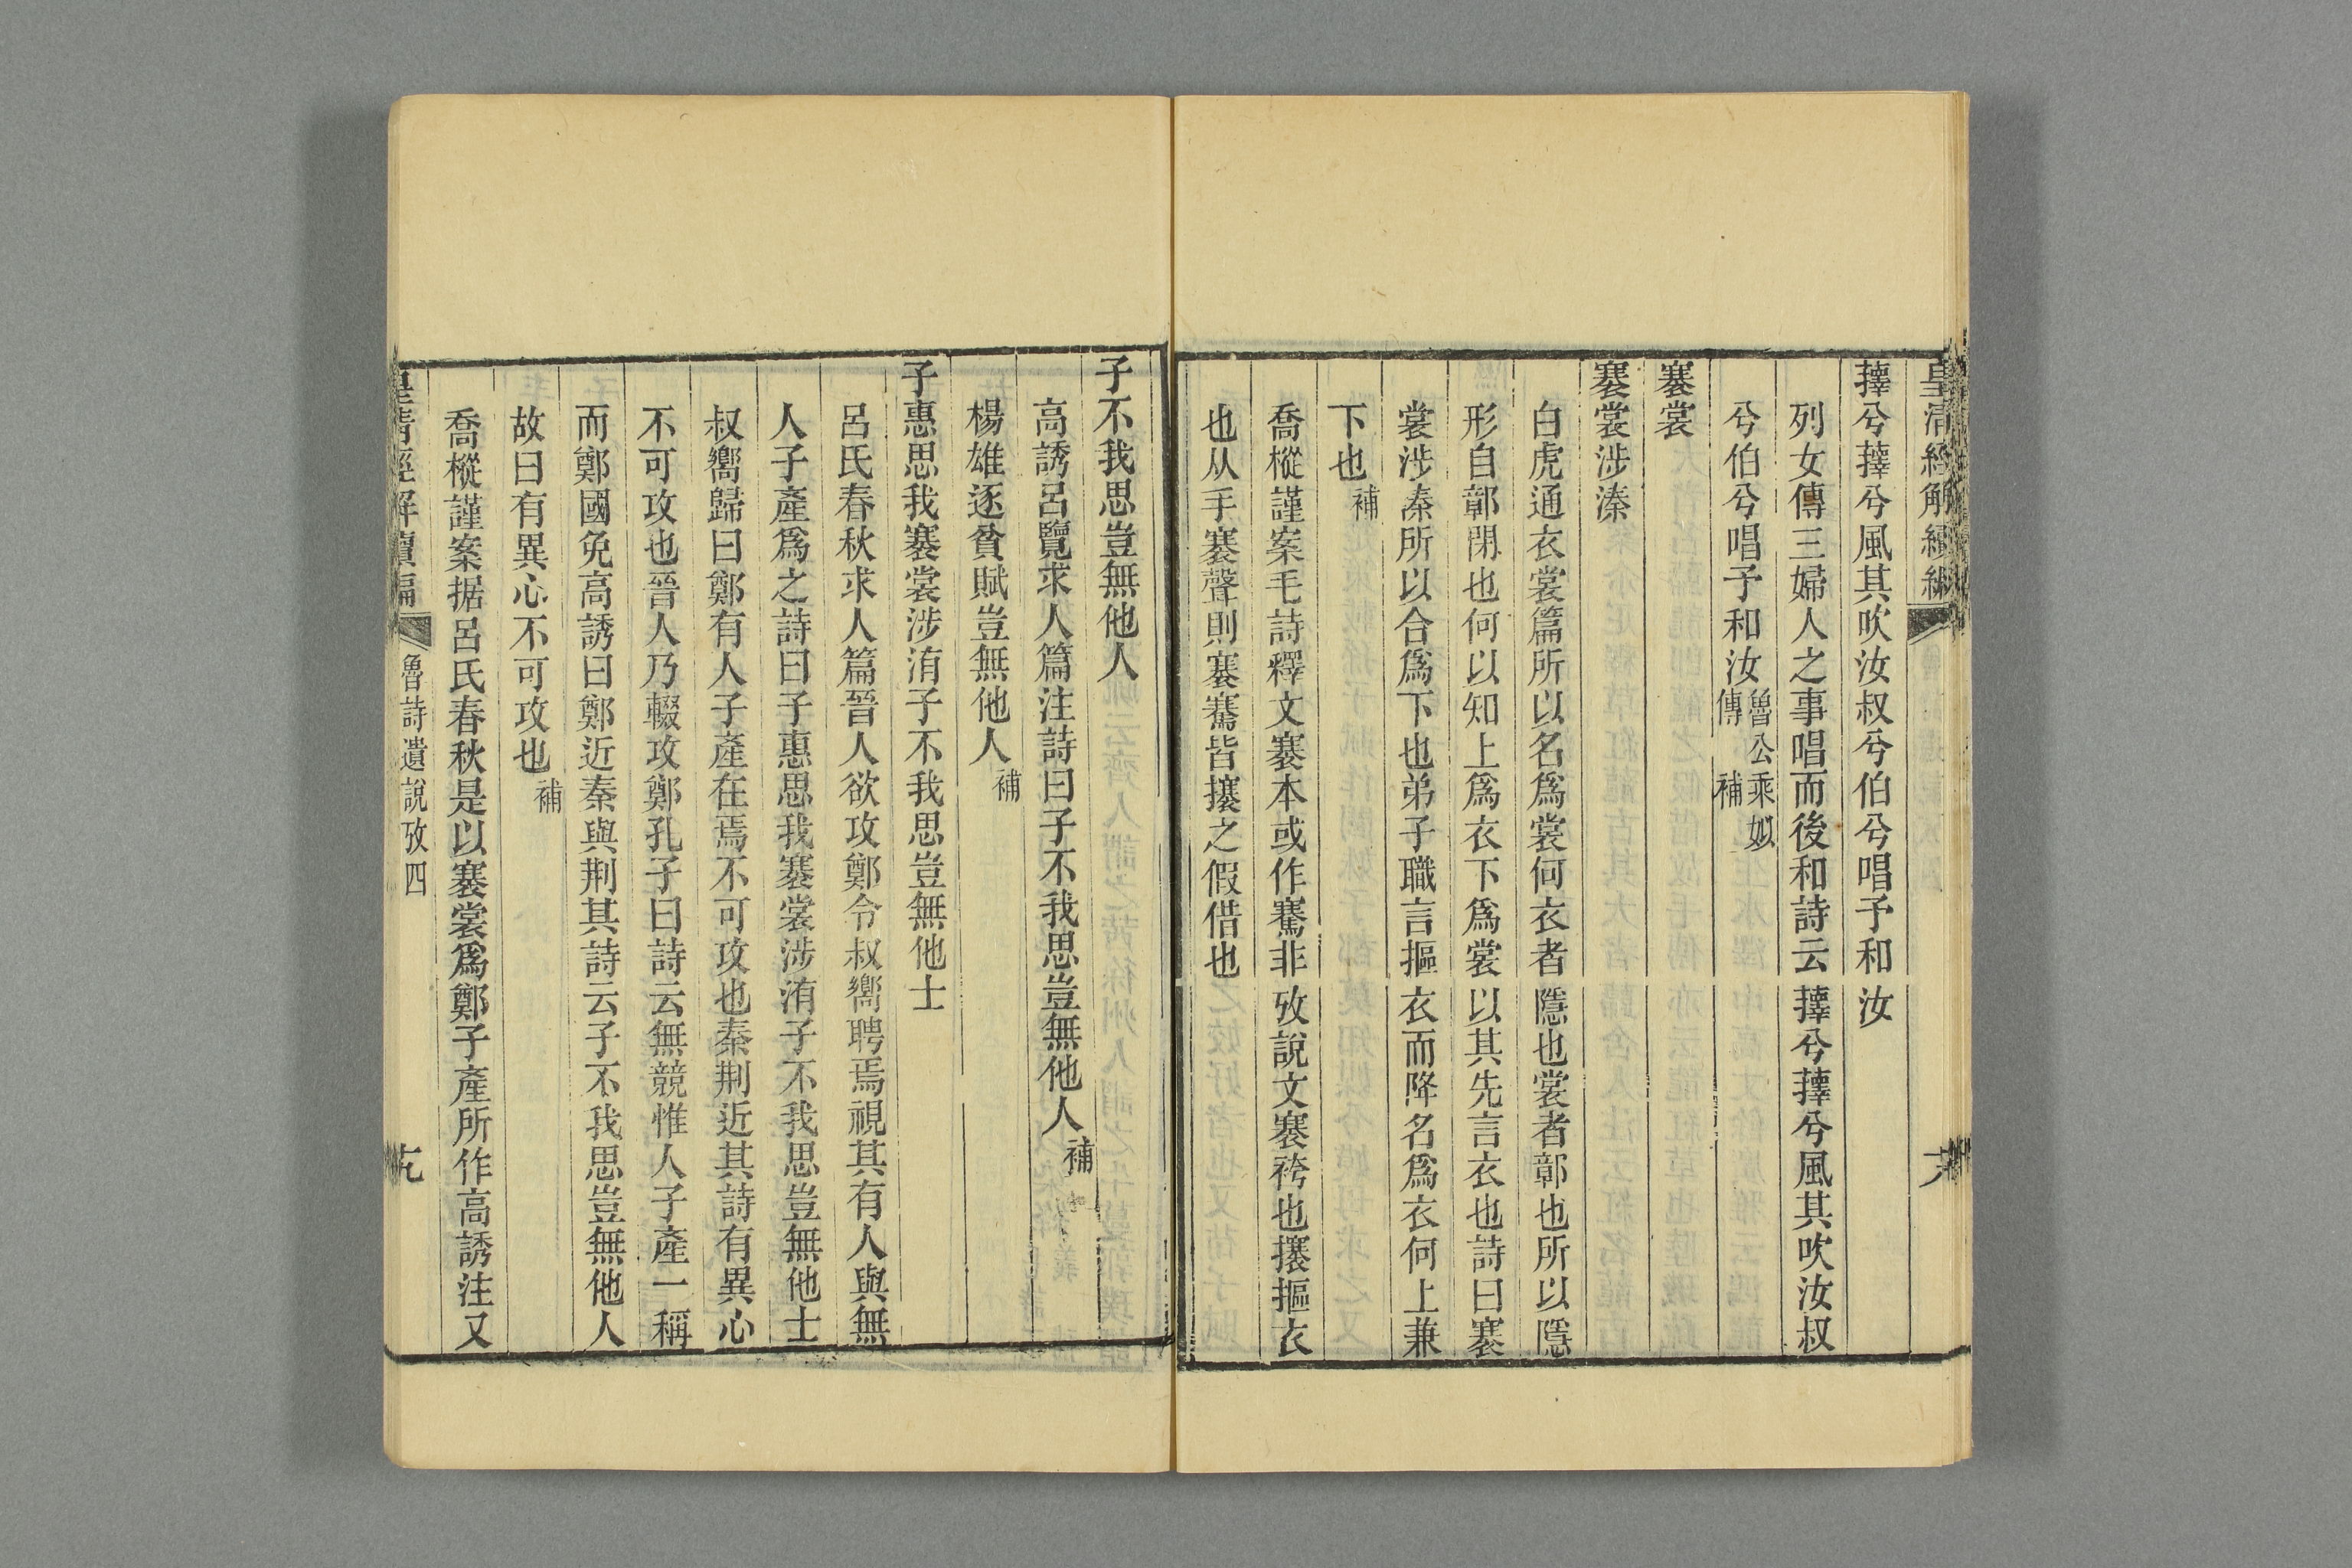 皇清經解續編
蘀兮蘀兮風其吹汝叔兮伯兮唱予和汝
列女傳三婦人之事唱而後和詩云蘀兮蘀兮風其吹汝叔
兮伯兮唱予和汝魯公乘姒傳補
褰裳
褰裳涉溱
白虎通衣裳篇所以名爲裳何衣者隱也裳者鄣也所以隱
形自鄣閉也何以知上爲衣下爲裳以其先言衣也詩曰褰
裳涉溱所以合爲下也弟子職言摳衣而降名爲衣何上兼
下也補
喬樅謹案毛詩釋文褰本或作騫非攷說文褰袴也攐摳衣
也从手褰聲則褰騫皆攐之假借也
子不我思豈無他人
高誘呂覽求人篇注詩曰子不我思豈無他人補
楊雄逐貧賦豈無他人補
子惠思我褰裳涉洧子不我思豈無他士
呂氏春秋求人篇晉人欲攻鄭令叔嚮聘焉視其有人與無
人子產爲之詩曰子惠思我褰裳涉洧子不我思豈無他士
叔嚮歸曰鄭有人子產在焉不可攻也秦荆近其詩有異心
不可攻也晉人乃輟攻鄭孔子曰詩云無競惟人子產一稱
而鄭國免高誘曰鄭近秦與荆其詩云子不我思豈無他人
故曰有異心不可攻也補
喬樅謹案据呂氏春秋是以褰裳爲鄭子產所作高誘注又
皇清經解續編
魯詩遺說攷四